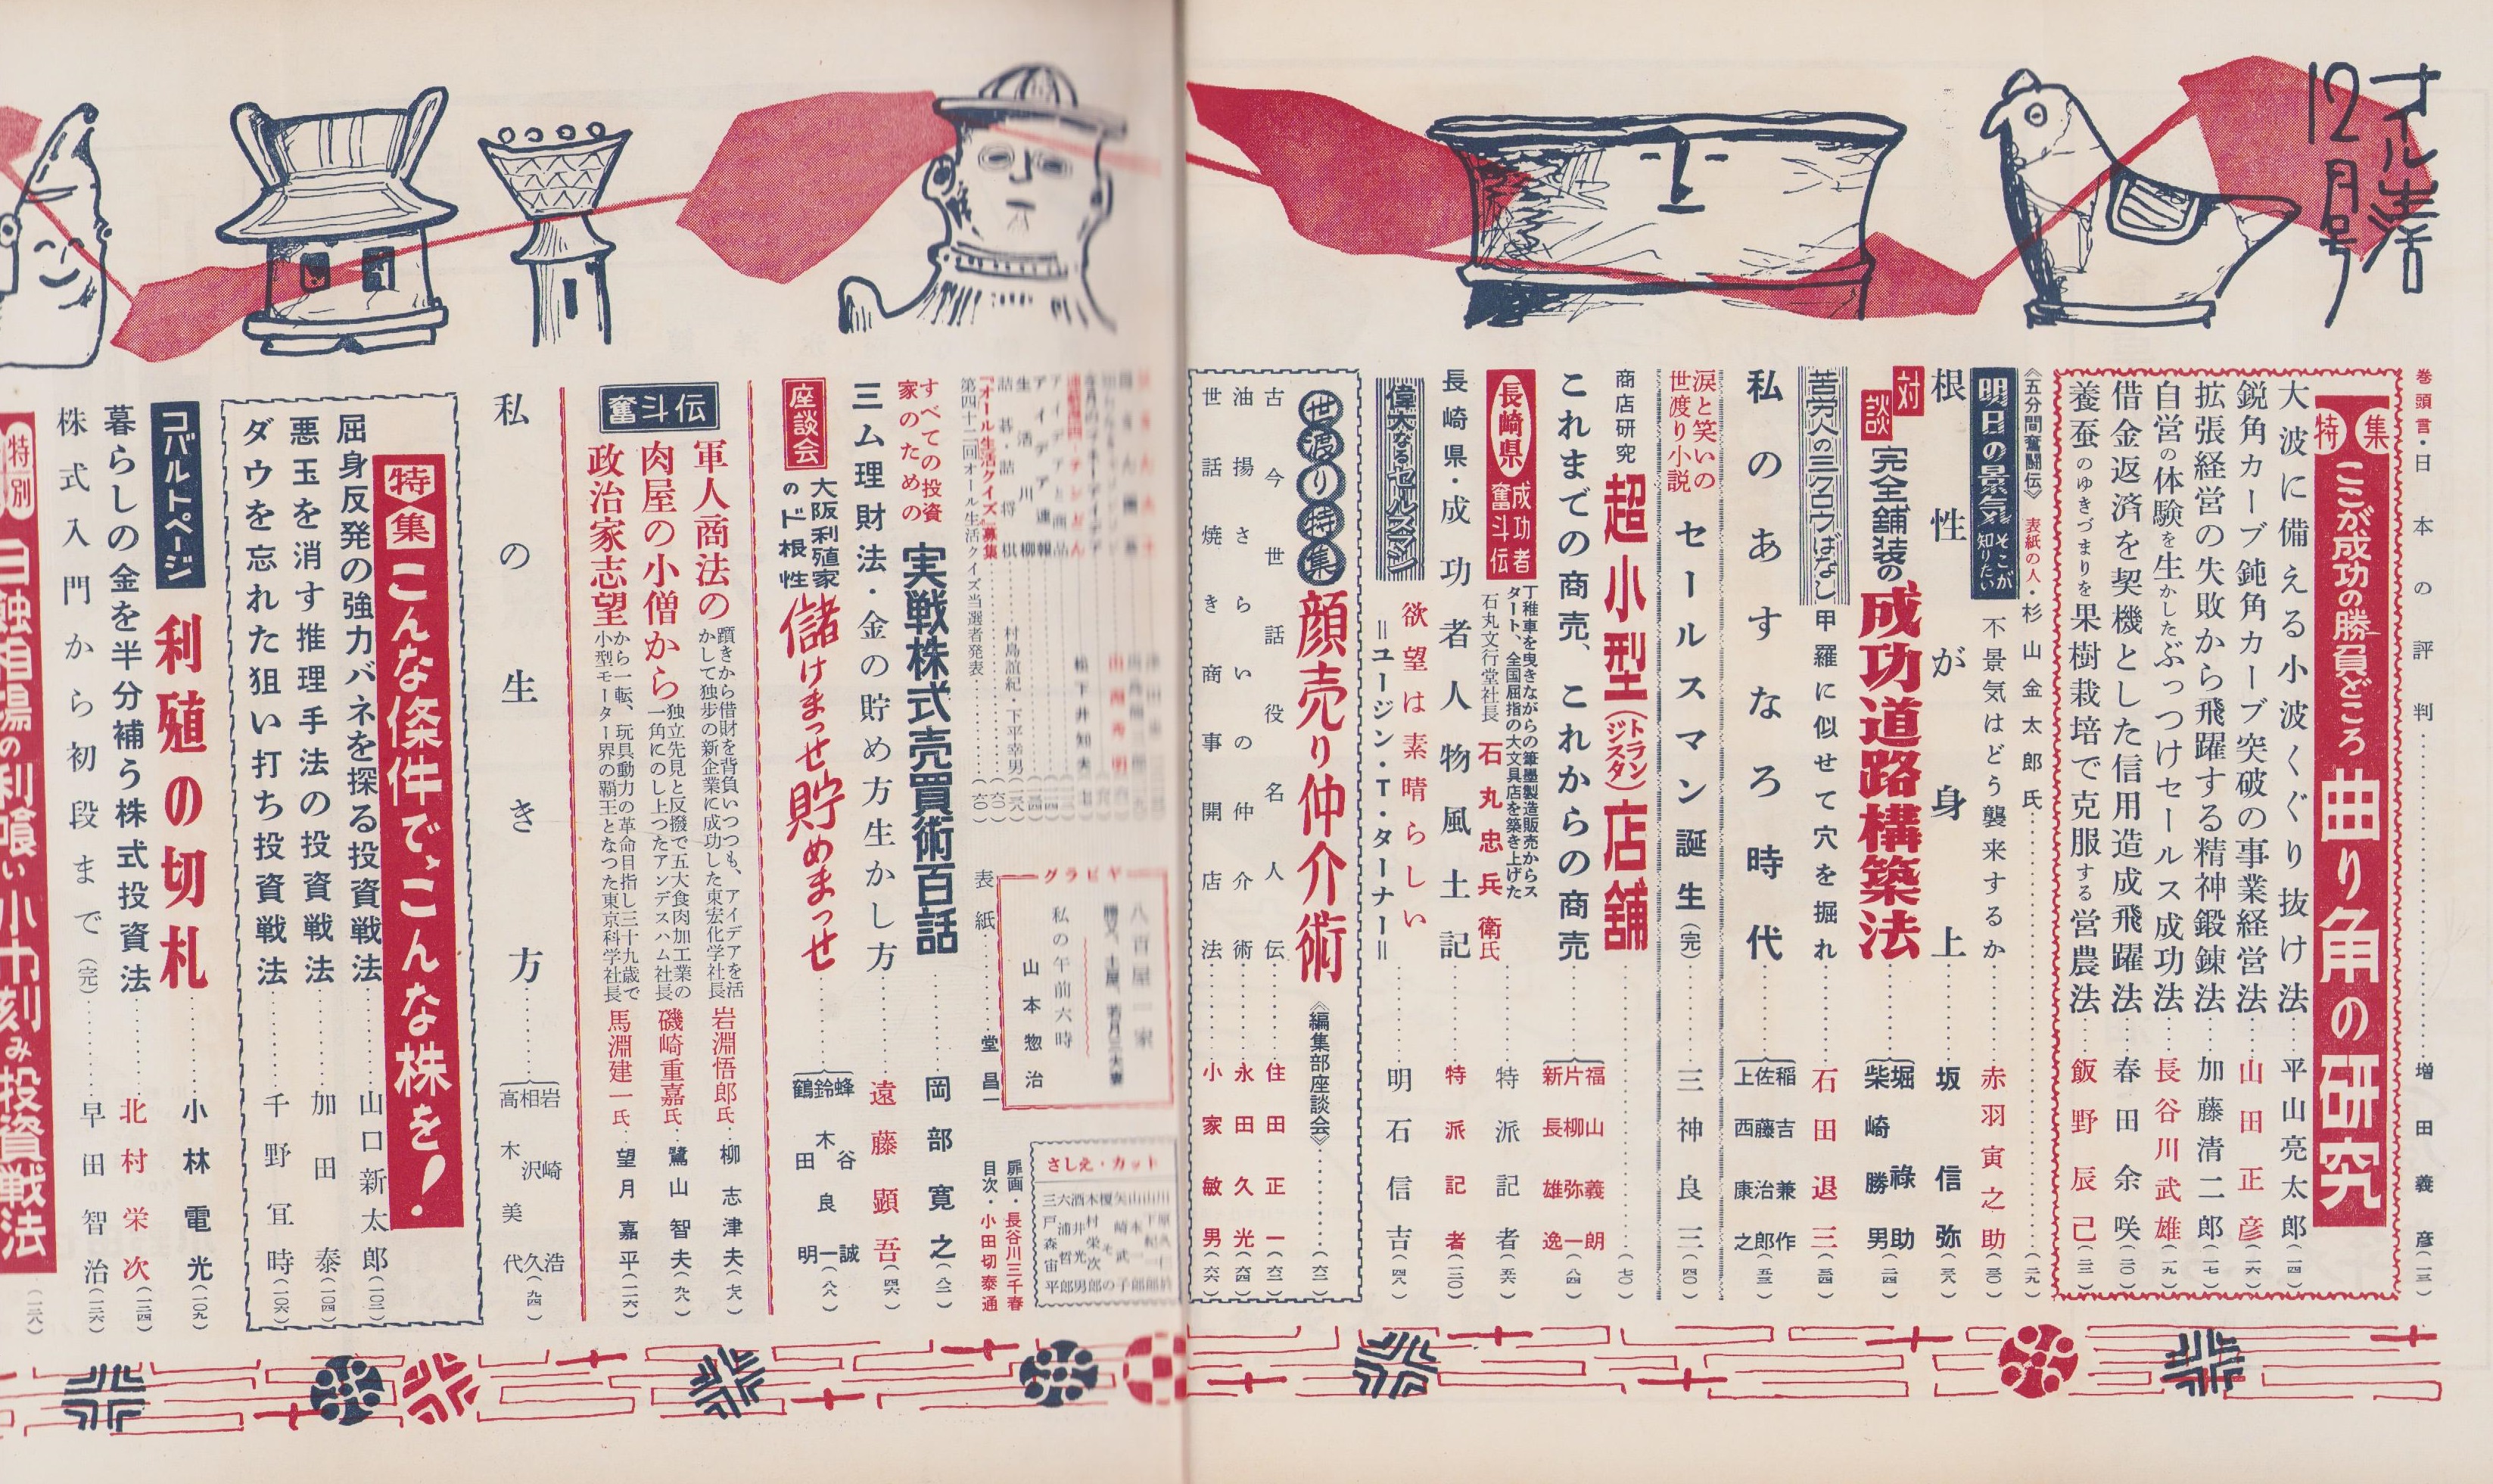 オール生活
12月号
巻頭言・日本の評判………増田義彦(一三)
特集 ここが成功の勝負どころ 曲り角の研究
大波に備える小波くぐり抜け法……平山亮太郎(一四)
鋭角カーブ鈍角カーブ突破の事業経営法……山田正彦(一六)
拡張経営の失敗から飛躍する精神鍛錬法……加藤清二郎(一七)
自営の体験を生かしたぶっつけセールス成功法……長谷川武雄(一九)
借金返済を契機とした信用造成飛躍法……春田余咲(二〇)
養蚕のゆきづまりを果樹栽培で克服する営農法……飯野辰己(二二)
《五分間奮闘伝》 表紙の人・杉山金太郎氏………(二九)
明日の景気 そこが知りたい 不景気はどう襲来するか……赤羽寅之助(三〇)
根性が身上……坂信弥(三八)
対談 完全舗装の成功道路構築法……堀祿助 柴崎勝男(二四)
苦労人の三クロウばなし 甲羅に似せて穴を掘れ……石田退三(三四)
私のあすなろ時代……稲吉兼作 佐藤治郎 上西康之(五三)
涙と笑いの世渡り小説 セールスマン誕生(完)……三神良三(四〇)
商店研究 超小型(トランジスタ)店舗………(七〇)
これまでの商売、これからの商売……福山義朗 片柳弥一 新長雄逸(八四)
長崎県 成功者奮斗伝 丁稚車を曳きながらの筆墨製造販売からスタート、全国屈指の大文具店を築き上げた
石丸文行堂社長 石丸忠兵衛氏……特派記者(五六)
長崎県・成功者人物風土記……特派記者(一二〇)
偉大なるセールスマン 欲望は素晴らしい =ユージン・T・ターナー=……明石信吉(四八)
世渡り特集 顔売り仲介術 《編集部座談会》……(六二)
古今世話役名人伝……住田正一(六二)
油揚さらいの仲介術……永田久光(六四)
世話焼き商事開店法……小家敏男(六六)
生活川柳
詰碁・詰将棋………村島誼紀・下平幸男(一二八)
『オール生活クイズ』募集………(六〇)
第四十二回オール生活クイズ当選者発表………(六〇)
グラビヤ
八百屋一家
私の午前六時
山本惣治
表紙……堂昌一
さしえ・カット
扉画・長谷川三千春
目次・小田切泰通
すべての投資家のための 実戦株式売買術百話……岡部寛之(八二)
三ム理財法・金の貯め方生かし方……遠藤顕吾(四六)
座談会 大阪利殖家のド根性 儲けまっせ貯めまっせ……蜂谷誠 鈴木良一 鶴田明(八八)
奮斗伝
軍人商法の 躓きから借財を背負いつつも、アイデアを活かして独歩の新企業に成功した東宏化学社長 岩淵悟郎氏…柳志津夫(七八)
肉屋の小僧から 独立先見と反撥で五大食肉加工業の一角にのし上つたアンデスハム社長 磯崎重嘉氏…鷺山智夫(九八)
政治家志望 から一転、玩具動力の革命目指し三十九歳で小型モーター界の覇王となつた東京科学社長 馬淵建一氏…望月嘉平(一一六)
私の生き方……岩崎浩 相沢久 高木美代(九四)
特集 こんな條件で、こんな株を！
屈身反発の強力バネを探る投資戦法……山口新太郎(一〇二)
悪玉を消す推理手法の投資戦法……加田泰(一〇四)
ダウを忘れた狙い打ち投資戦法……千野冝時(一〇六)
コバルトページ 利殖の切札……小林電光(一〇九)
暮らしの金を半分補う株式投資法……北村栄次(一二四)
株式入門から初段まで(完)……早田智治(一三六)
特別 白蝕相場の利喰い小刻み投資戦法(一三八)